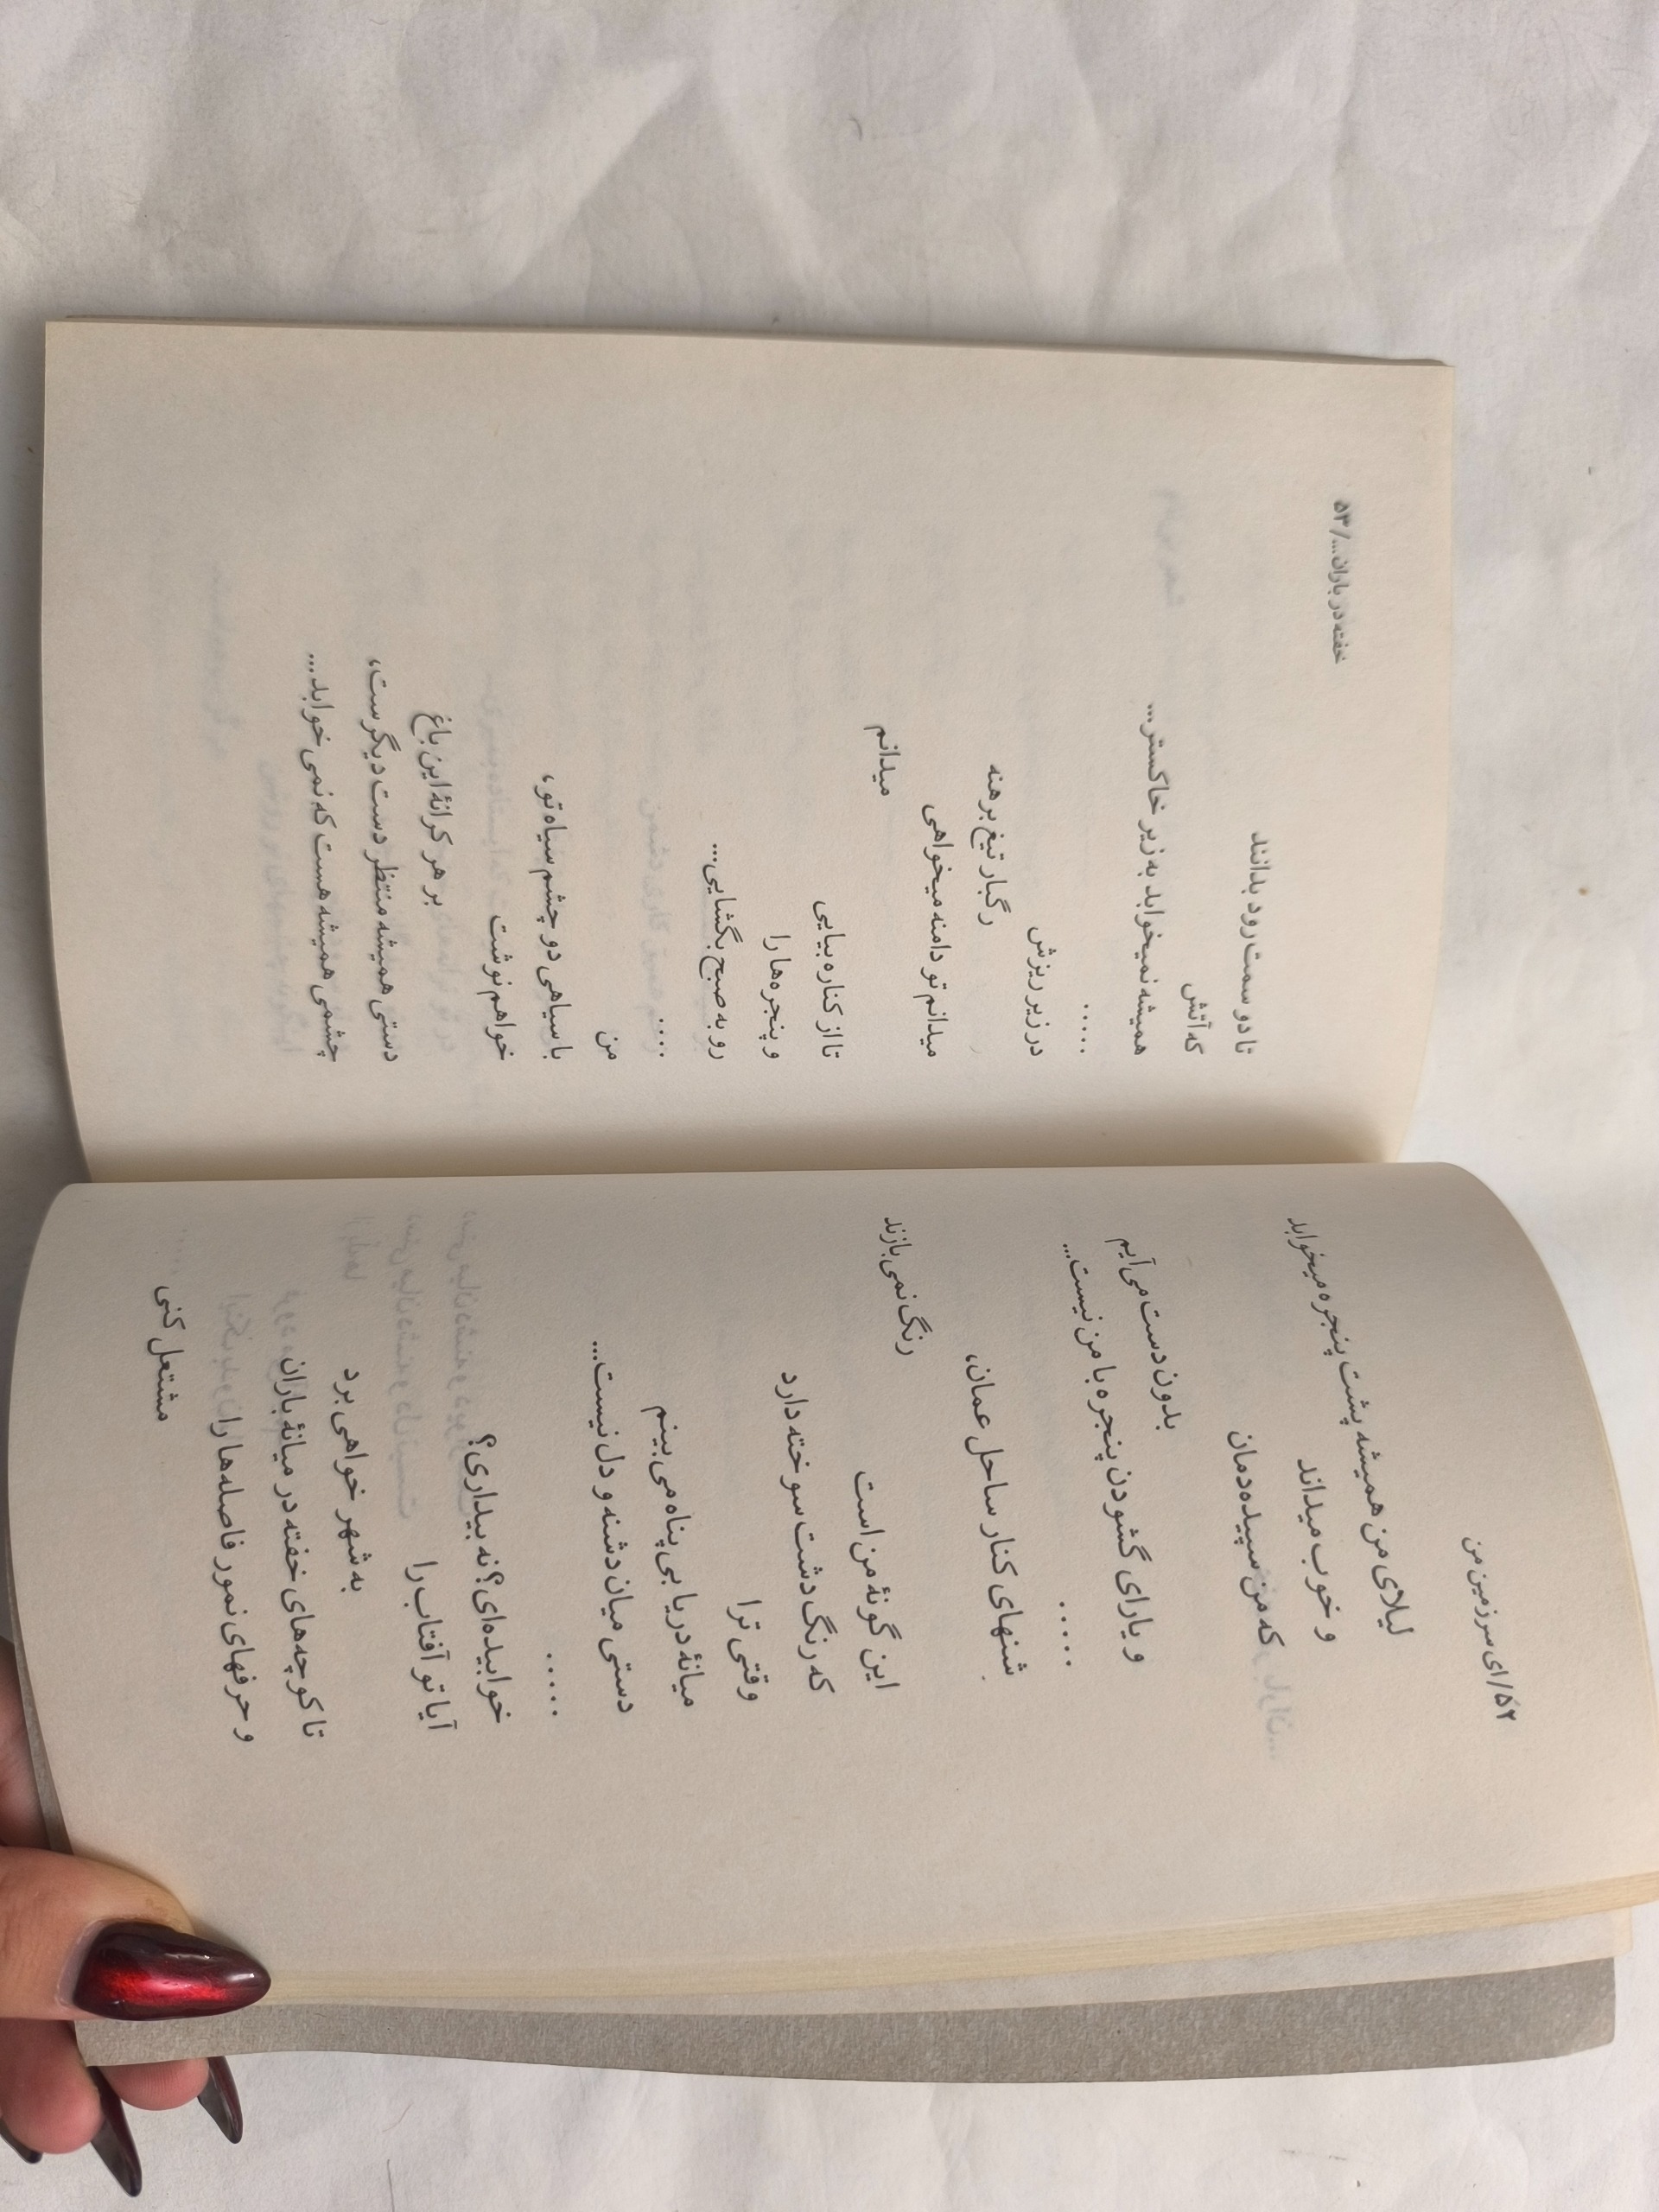 ۵۲/ای سرزمین من
لیلای من همیشه پشت پنجره میخوابد
و خوب میداند
که من سپیده‌دمان
بدون دست می‌آیم
و یارای گشودن پنجره با من نیست...
.....
شنهای کنار ساحل عمان،
رنگ نمی‌بازند
این گونهٔ من است
که رنگ دشت سوخته دارد
وقتی ترا
میانهٔ دریا بی‌پناه می‌بینم
دستی میان دشنه و دل نیست...
.....
خوابیده‌ای؟ نه بیداری؟
آیا تو آفتاب را
به شهر خواهی برد
تا کوچه‌های خفته در میانهٔ باران
و حرفهای نمور فاصله‌ها را
مشتعل کنی
خفته در باران.../۵۳
تا دو سمت رود بدانند
که آتش
همیشه نمیخوابد به زیر خاکستر...
.....
در زیر ریزش
رگبار تیغ برهنه
میدانم تو دامنه میخواهی
میدانم
تا از کناره بیایی
و پنجره‌ها را
رو به صبح بگشایی...
.....
من
با سیاهی دو چشم سیاه تو،
خواهم نوشت
بر هر کرانهٔ این باغ
دستی همیشه منتظر دست دیگرست،
چشمی همیشه هست که نمی‌خوابد...